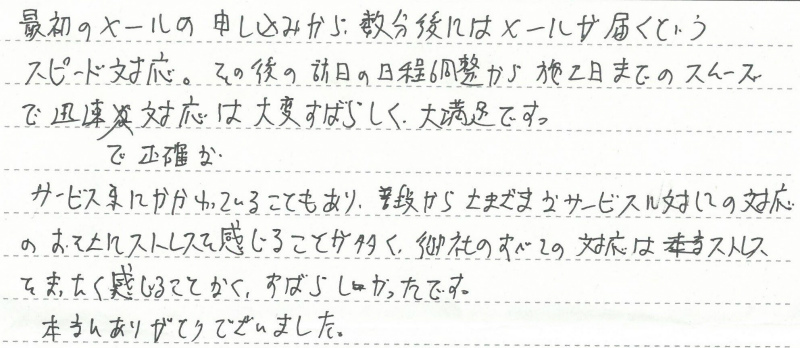 最初のメールの申し込みから、数分後にはメールが届くという
スピード対応。その後の訪日の日程調整から施工日までのスムーズ
で迅速な対応は大変すばらしく、大満足です。
で正確な
サービス業にかかわっていることもあり、普段からさまざまなサービスに対しての対応
のおそさにストレスを感じることが多く、御社のすべての対応は本当ストレス
をまったく感じることなく、すばらしかったです。
本当にありがとうございました。